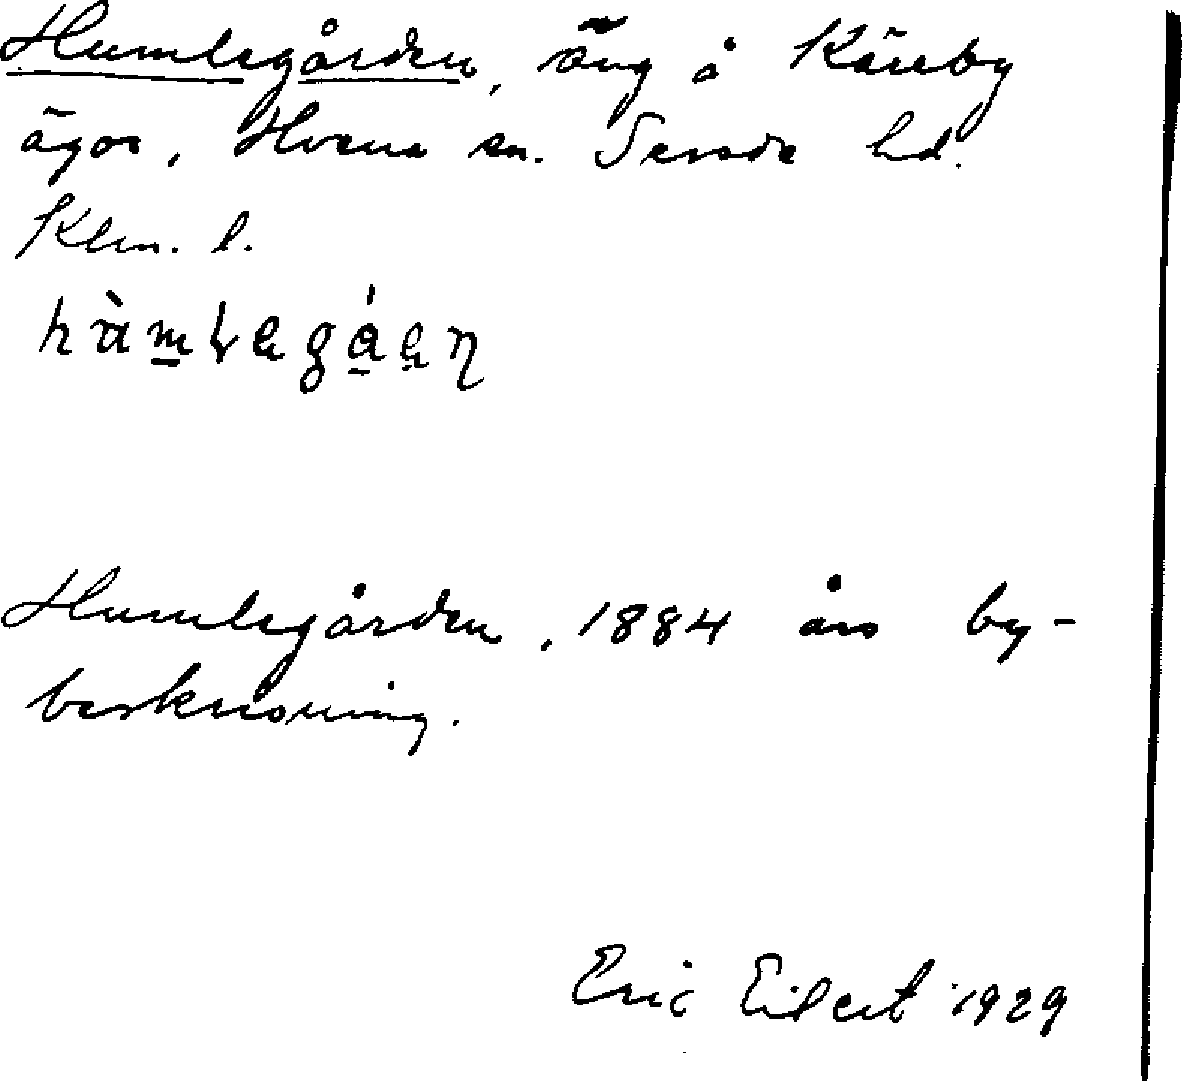 Humlegården, äng å Käreby
ägor, Hvena sn. Sevede hd.
Klm. l.
Humlegården, 1884 års by-
beskrivning.
Eric Eilert 1929